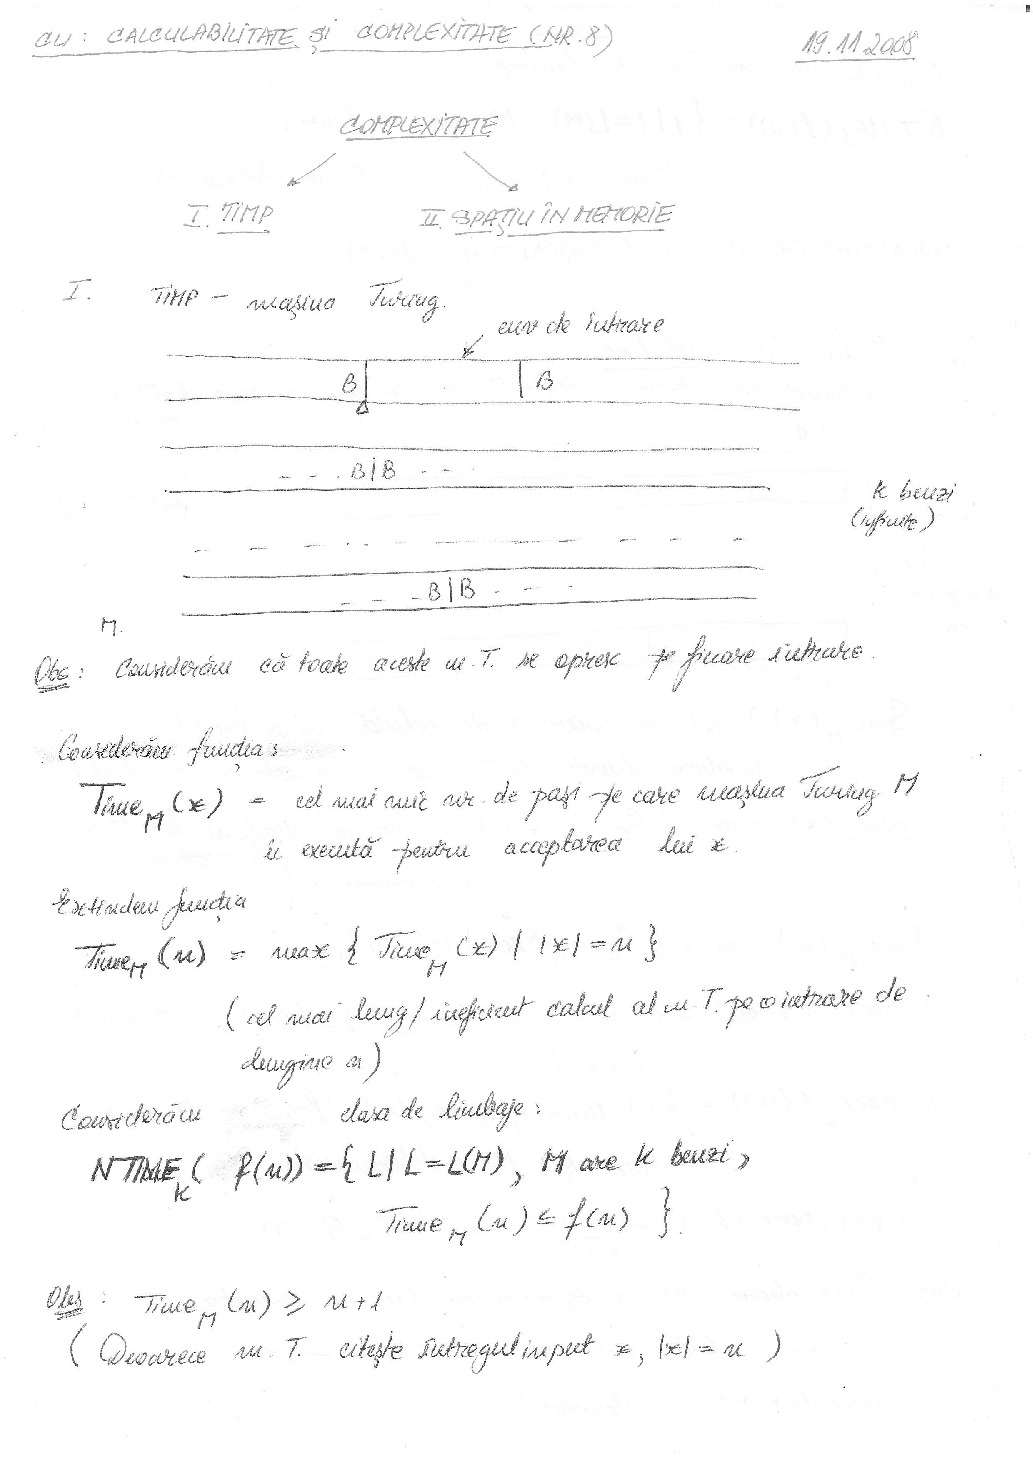 CU: CALCULABILITATE ȘI COMPLEXITATE (NR. 8) 19.11.2008
COMPLEXITATE
I. TIMP II. SPAȚIU ÎN MEMORIE
I. TIMP – mașina Turing.
cuv de intrare
B B
- - . B|B - - -
k benzi
(infinite)
- - - B|B - - -
M.
Obs: Considerăm că toate aceste m. T. se opresc pe fiecare intrare.
Considerăm funcția:
Time_M(x) = cel mai mic nr. de pași pe care mașina Turing M
îi execută pentru acceptarea lui x.
Extindem funcția
Time_M(n) = max { Time_M(x) / |x| = n }
(cel mai lung/ineficient calcul al m T. pe o intrare de
lungime n)
Considerăm clasa de limbaje:
NTIME_k( f(n)) = { L | L = L(M), M are k benzi,
Time_M(n) ≤ f(n) }.
Obs: Time_M(n) ≥ n+1
( Deoarece m. T. citește întregul input x, |x| = n )